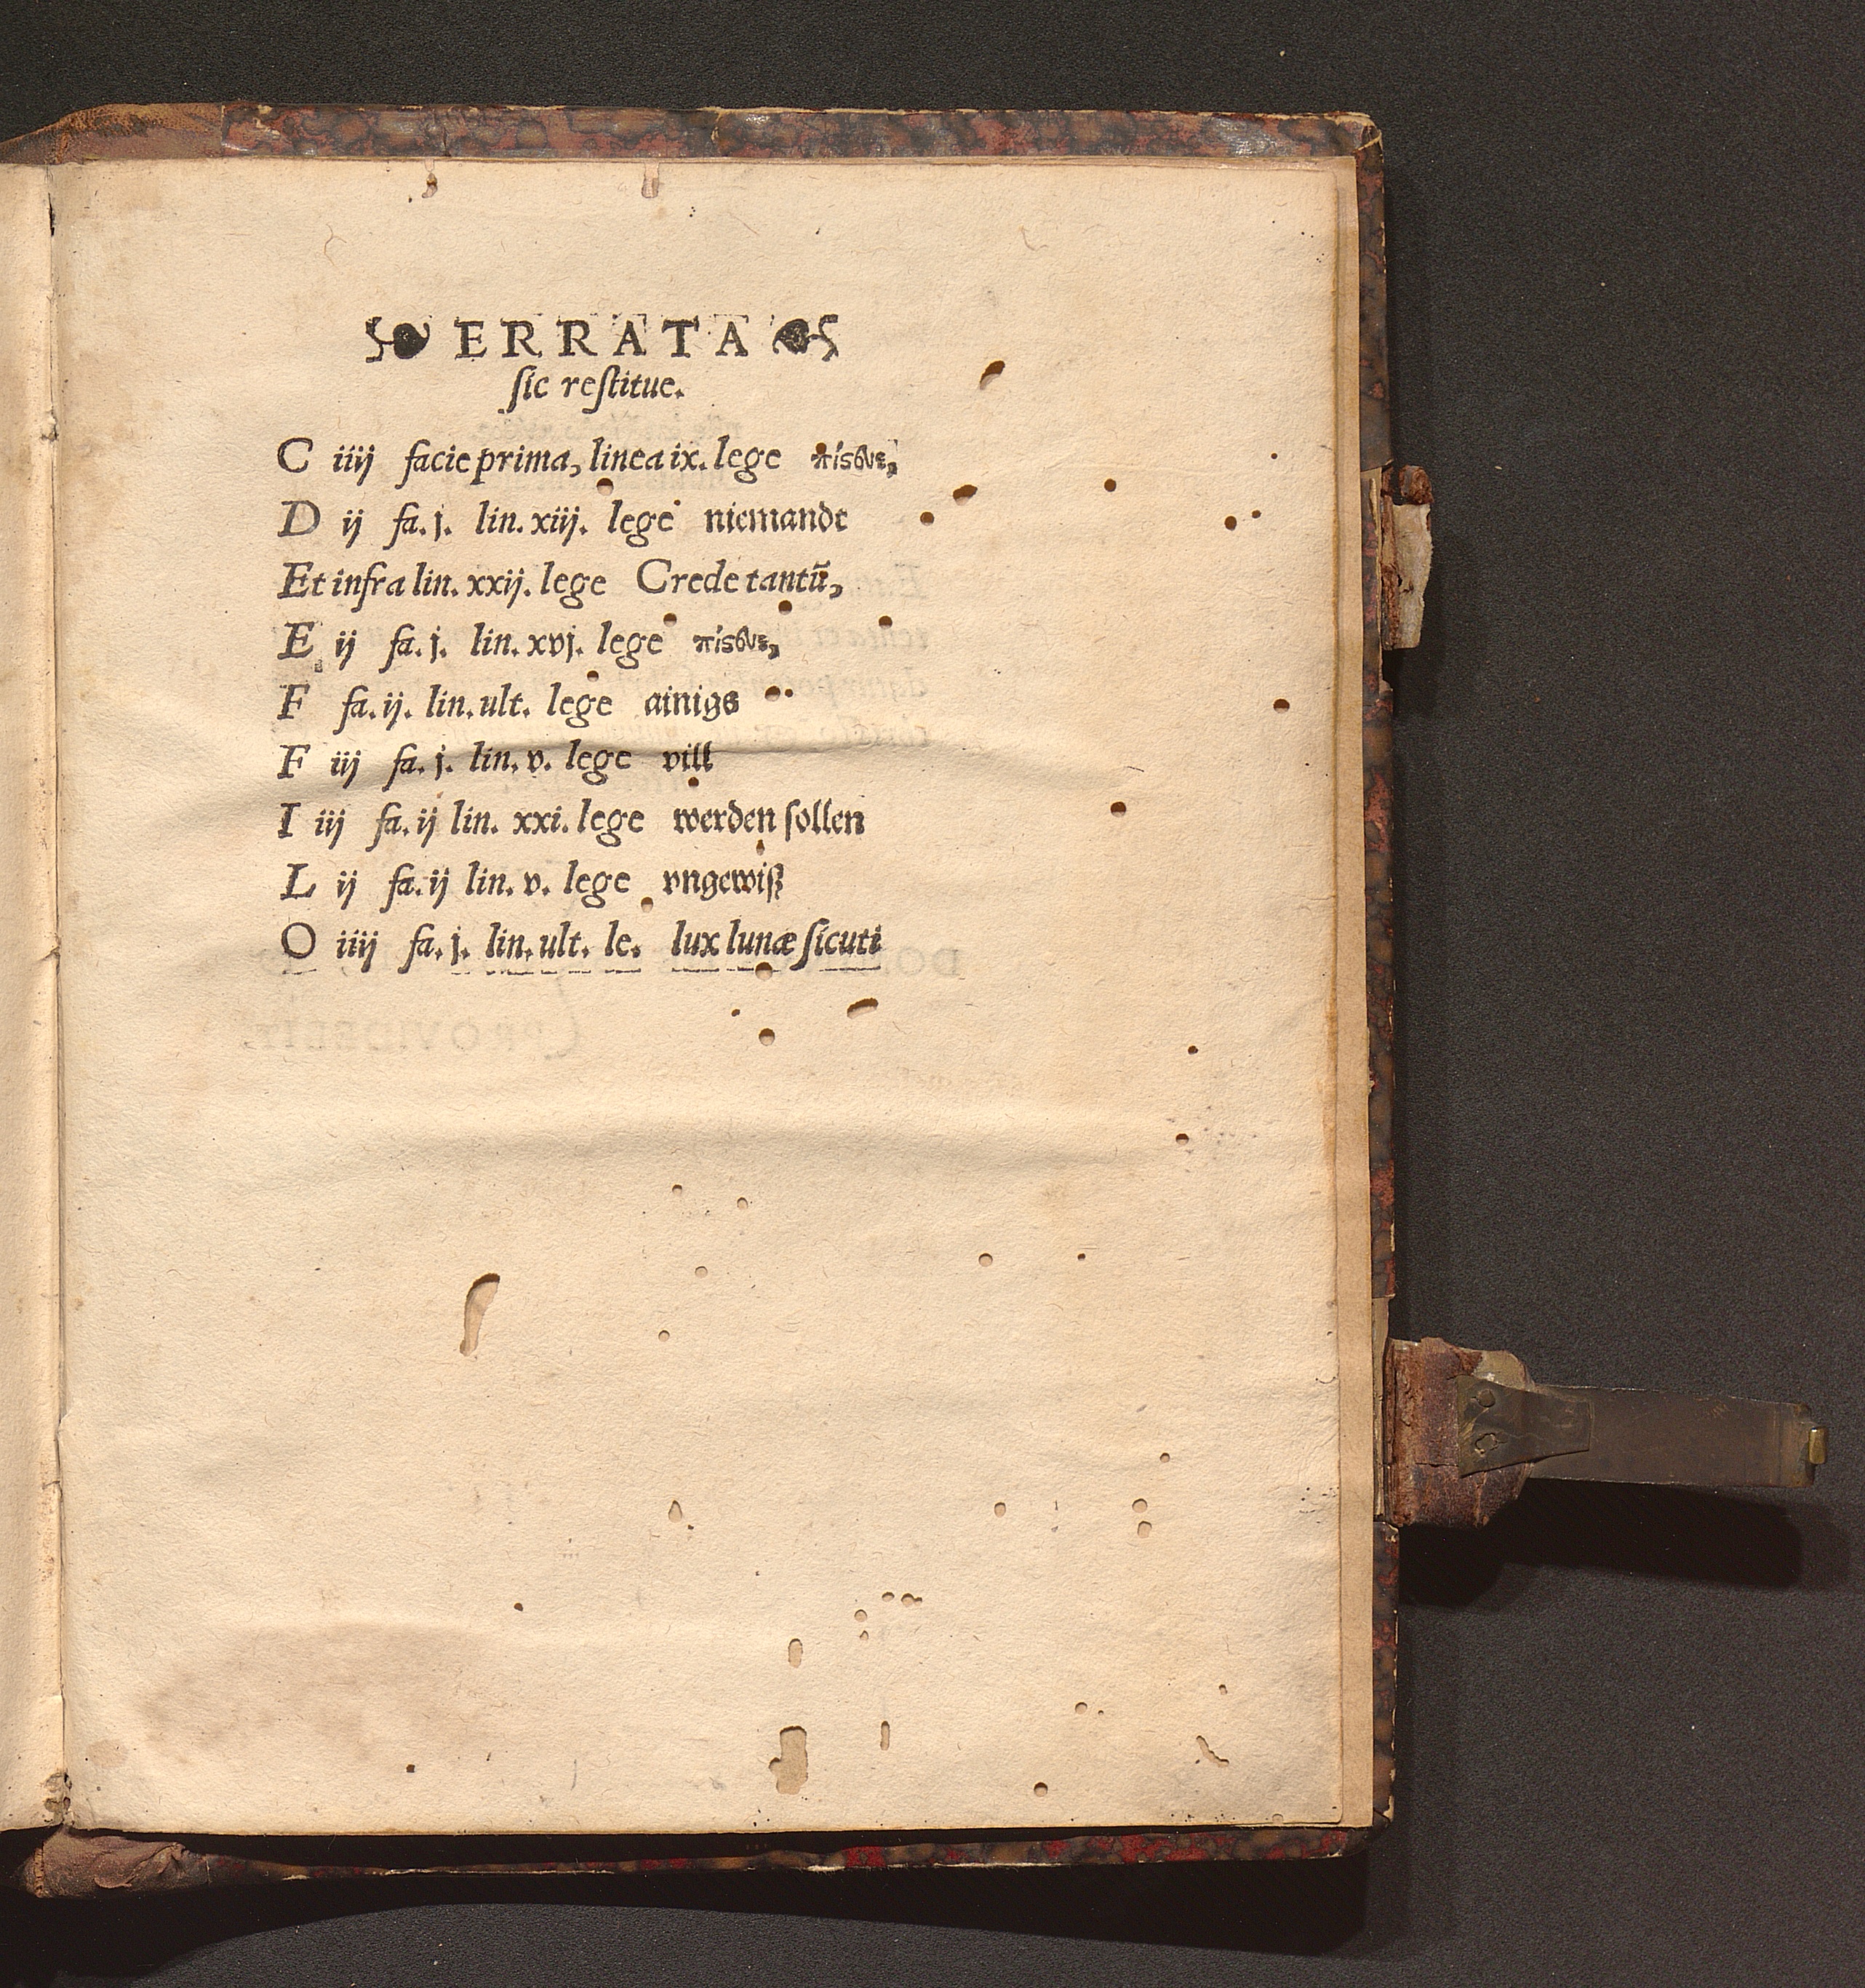 ERRATA
ſic reſtitue.
C iiij facie prima, linea ix. lege πίσευε,
D ij fa. j. lin. xiij. lege niemandt
Et infra lin. xxij. lege Crede tantū,
E ij fa. j. lin. xvj. lege πίσευε,
F fa. ij. lin. ult. lege ainigs
F iij fa. j. lin. v. lege vill
I iij fa. ij lin. xxi. lege werden ſollen
L ij fa. ij lin. v. lege vngewiß
O iiij fa. j. lin. ult. le. lux lunæ ſicuti